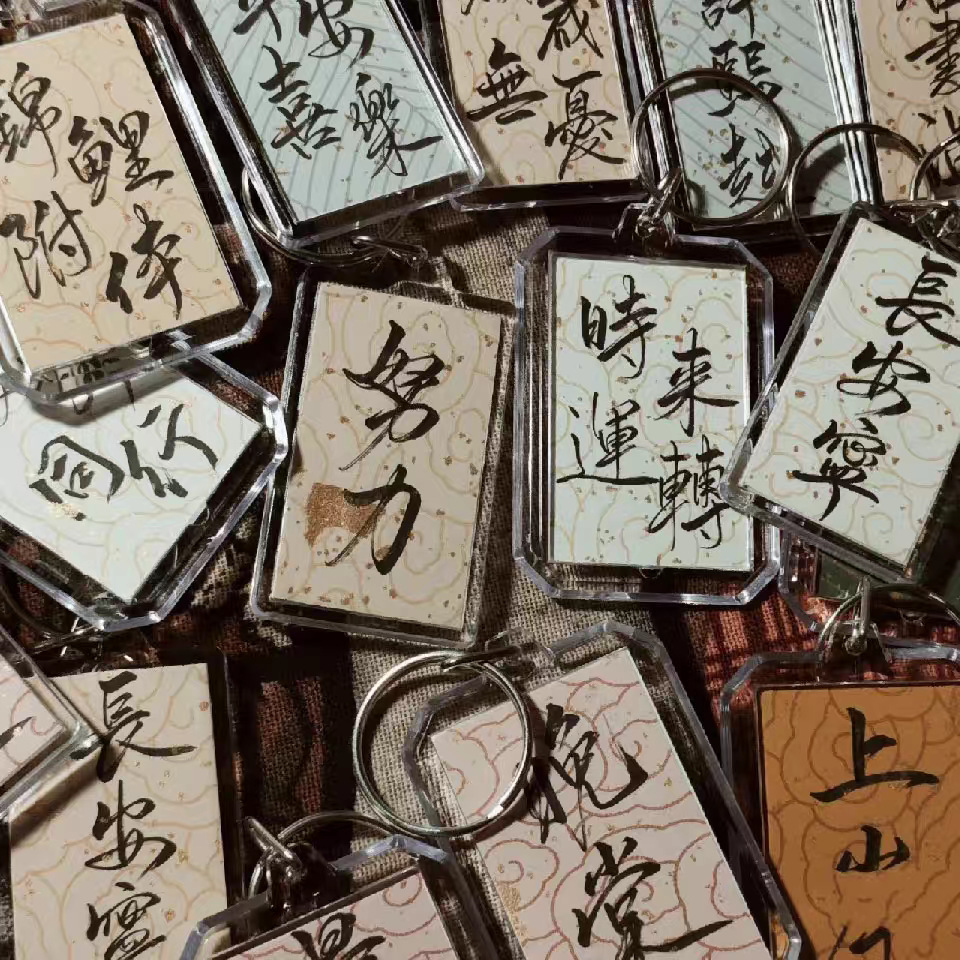 錦鯉
附体
平安
喜樂
歲
無憂
書
努力
時来
運轉
長安寧
長安寧
棠
上山